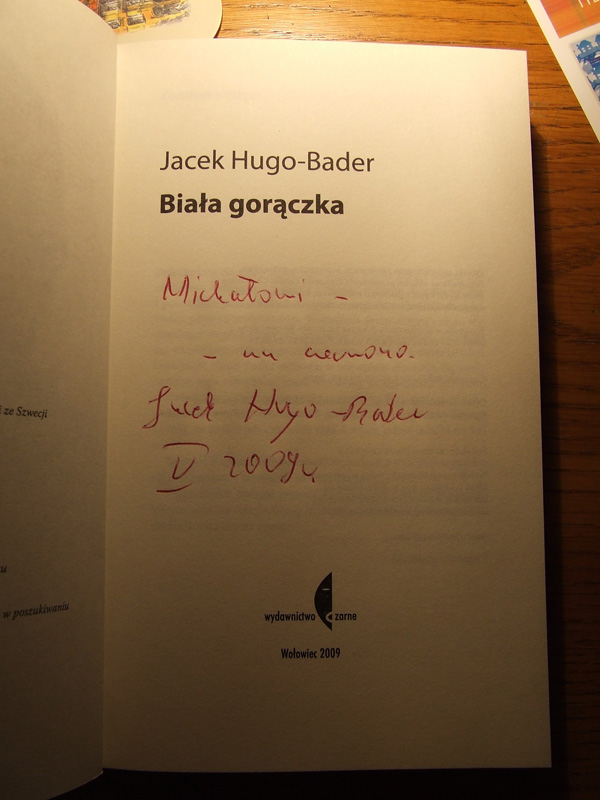 Jacek Hugo-Bader
Biała gorączka
Michałowi -
Jacek Hugo-Bader
V 2009r.
ze Szwecji
u
w poszukiwaniu
wydawnictwo czarne
Wołowiec 2009